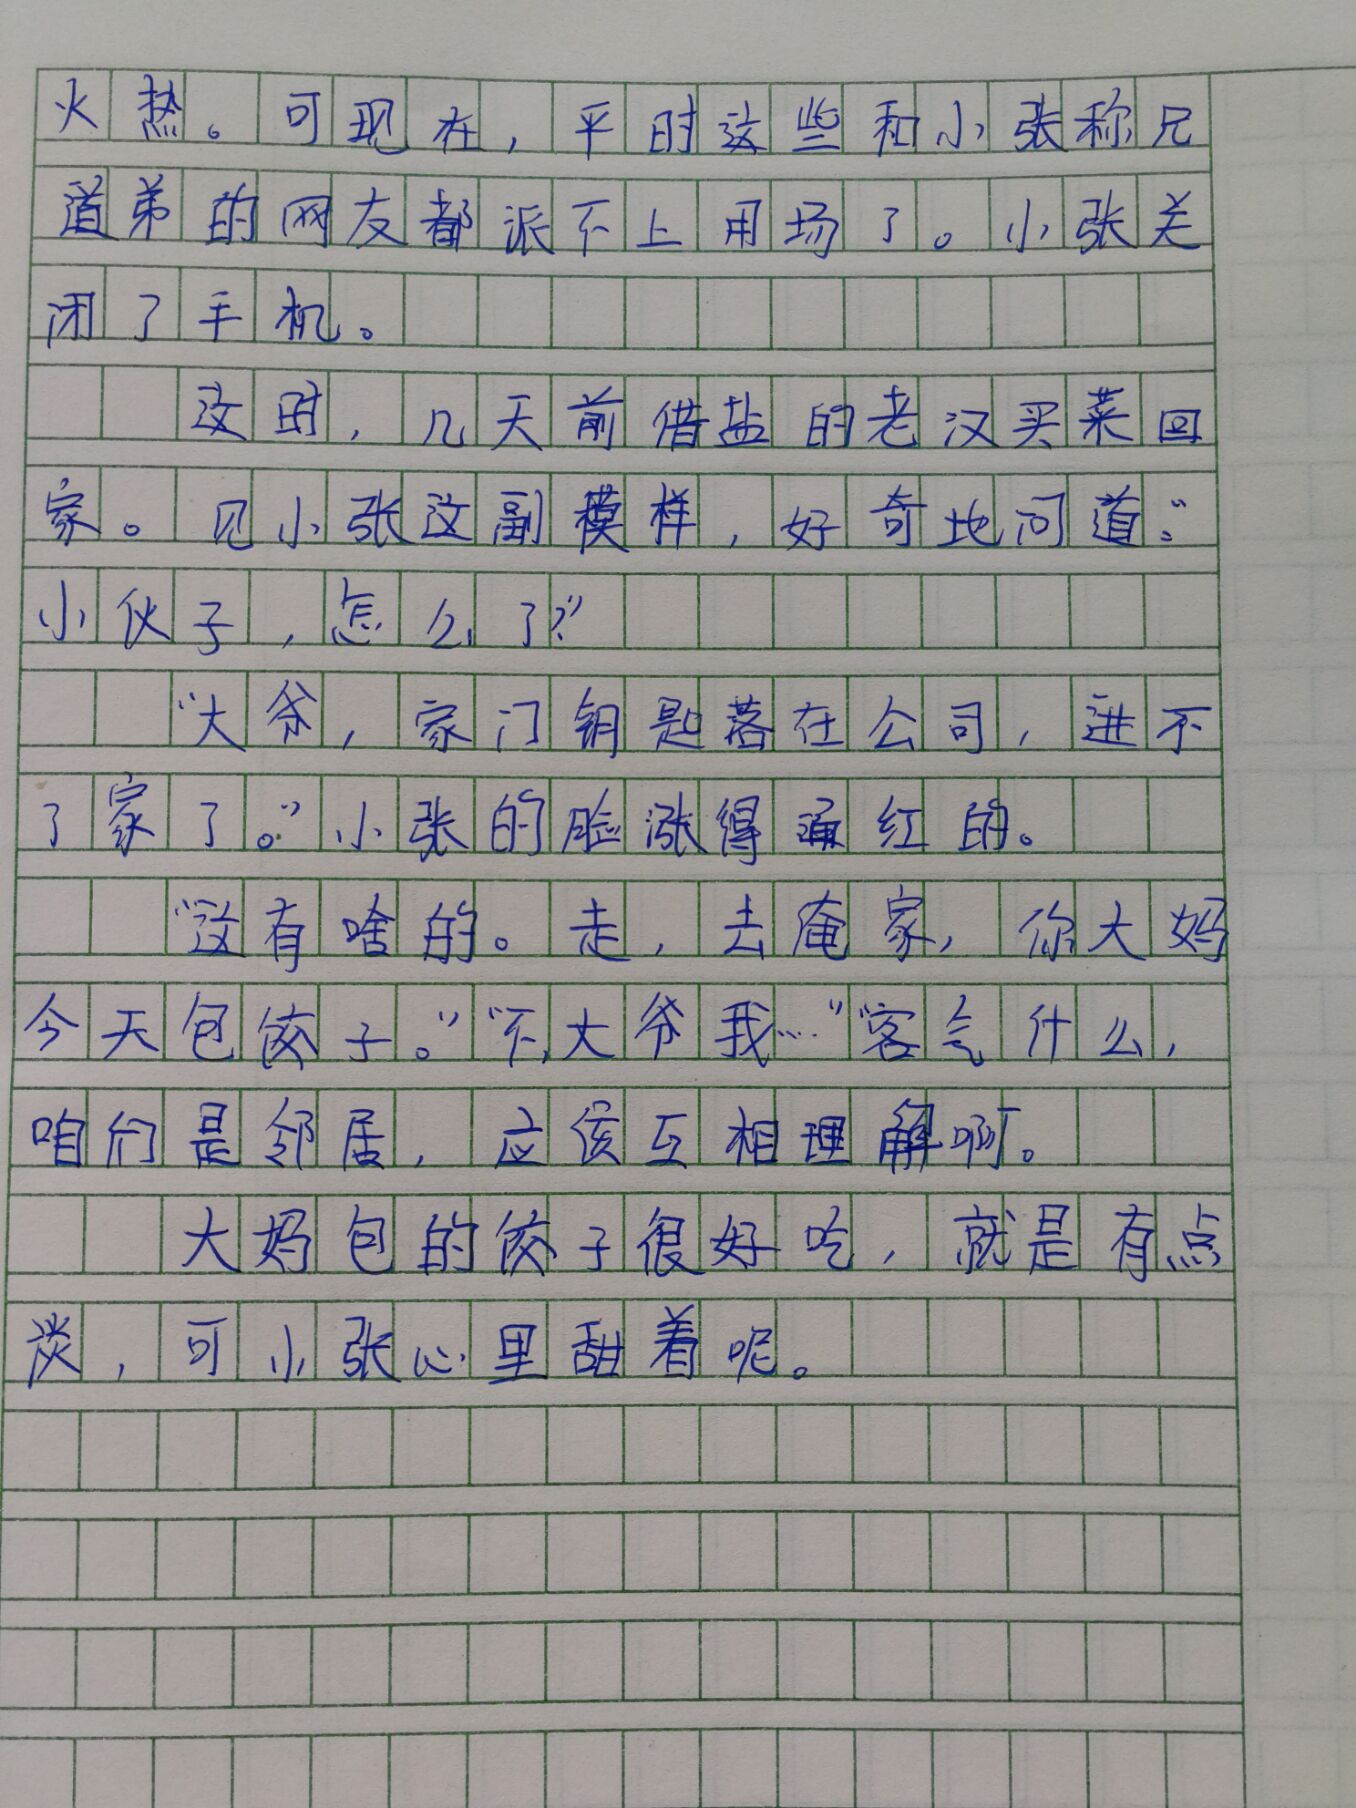 火热。可现在，平时这些和小张称兄
道弟的网友都派不上用场了。小张关
闭了手机。
这时，几天前借盐的老汉买菜回
家。见小张这副模样，好奇地问道：“
小伙子，怎么了？”
“大爷，家门钥匙落在公司，进不
了家了。”小张的脸涨得通红的。
“这有啥的。走，去俺家，你大妈
今天包饺子。”“不，大爷我…”“客气什么，
咱们是邻居，应该互相理解啊。
大妈包的饺子很好吃，就是有点
淡，可小张心里甜着呢。